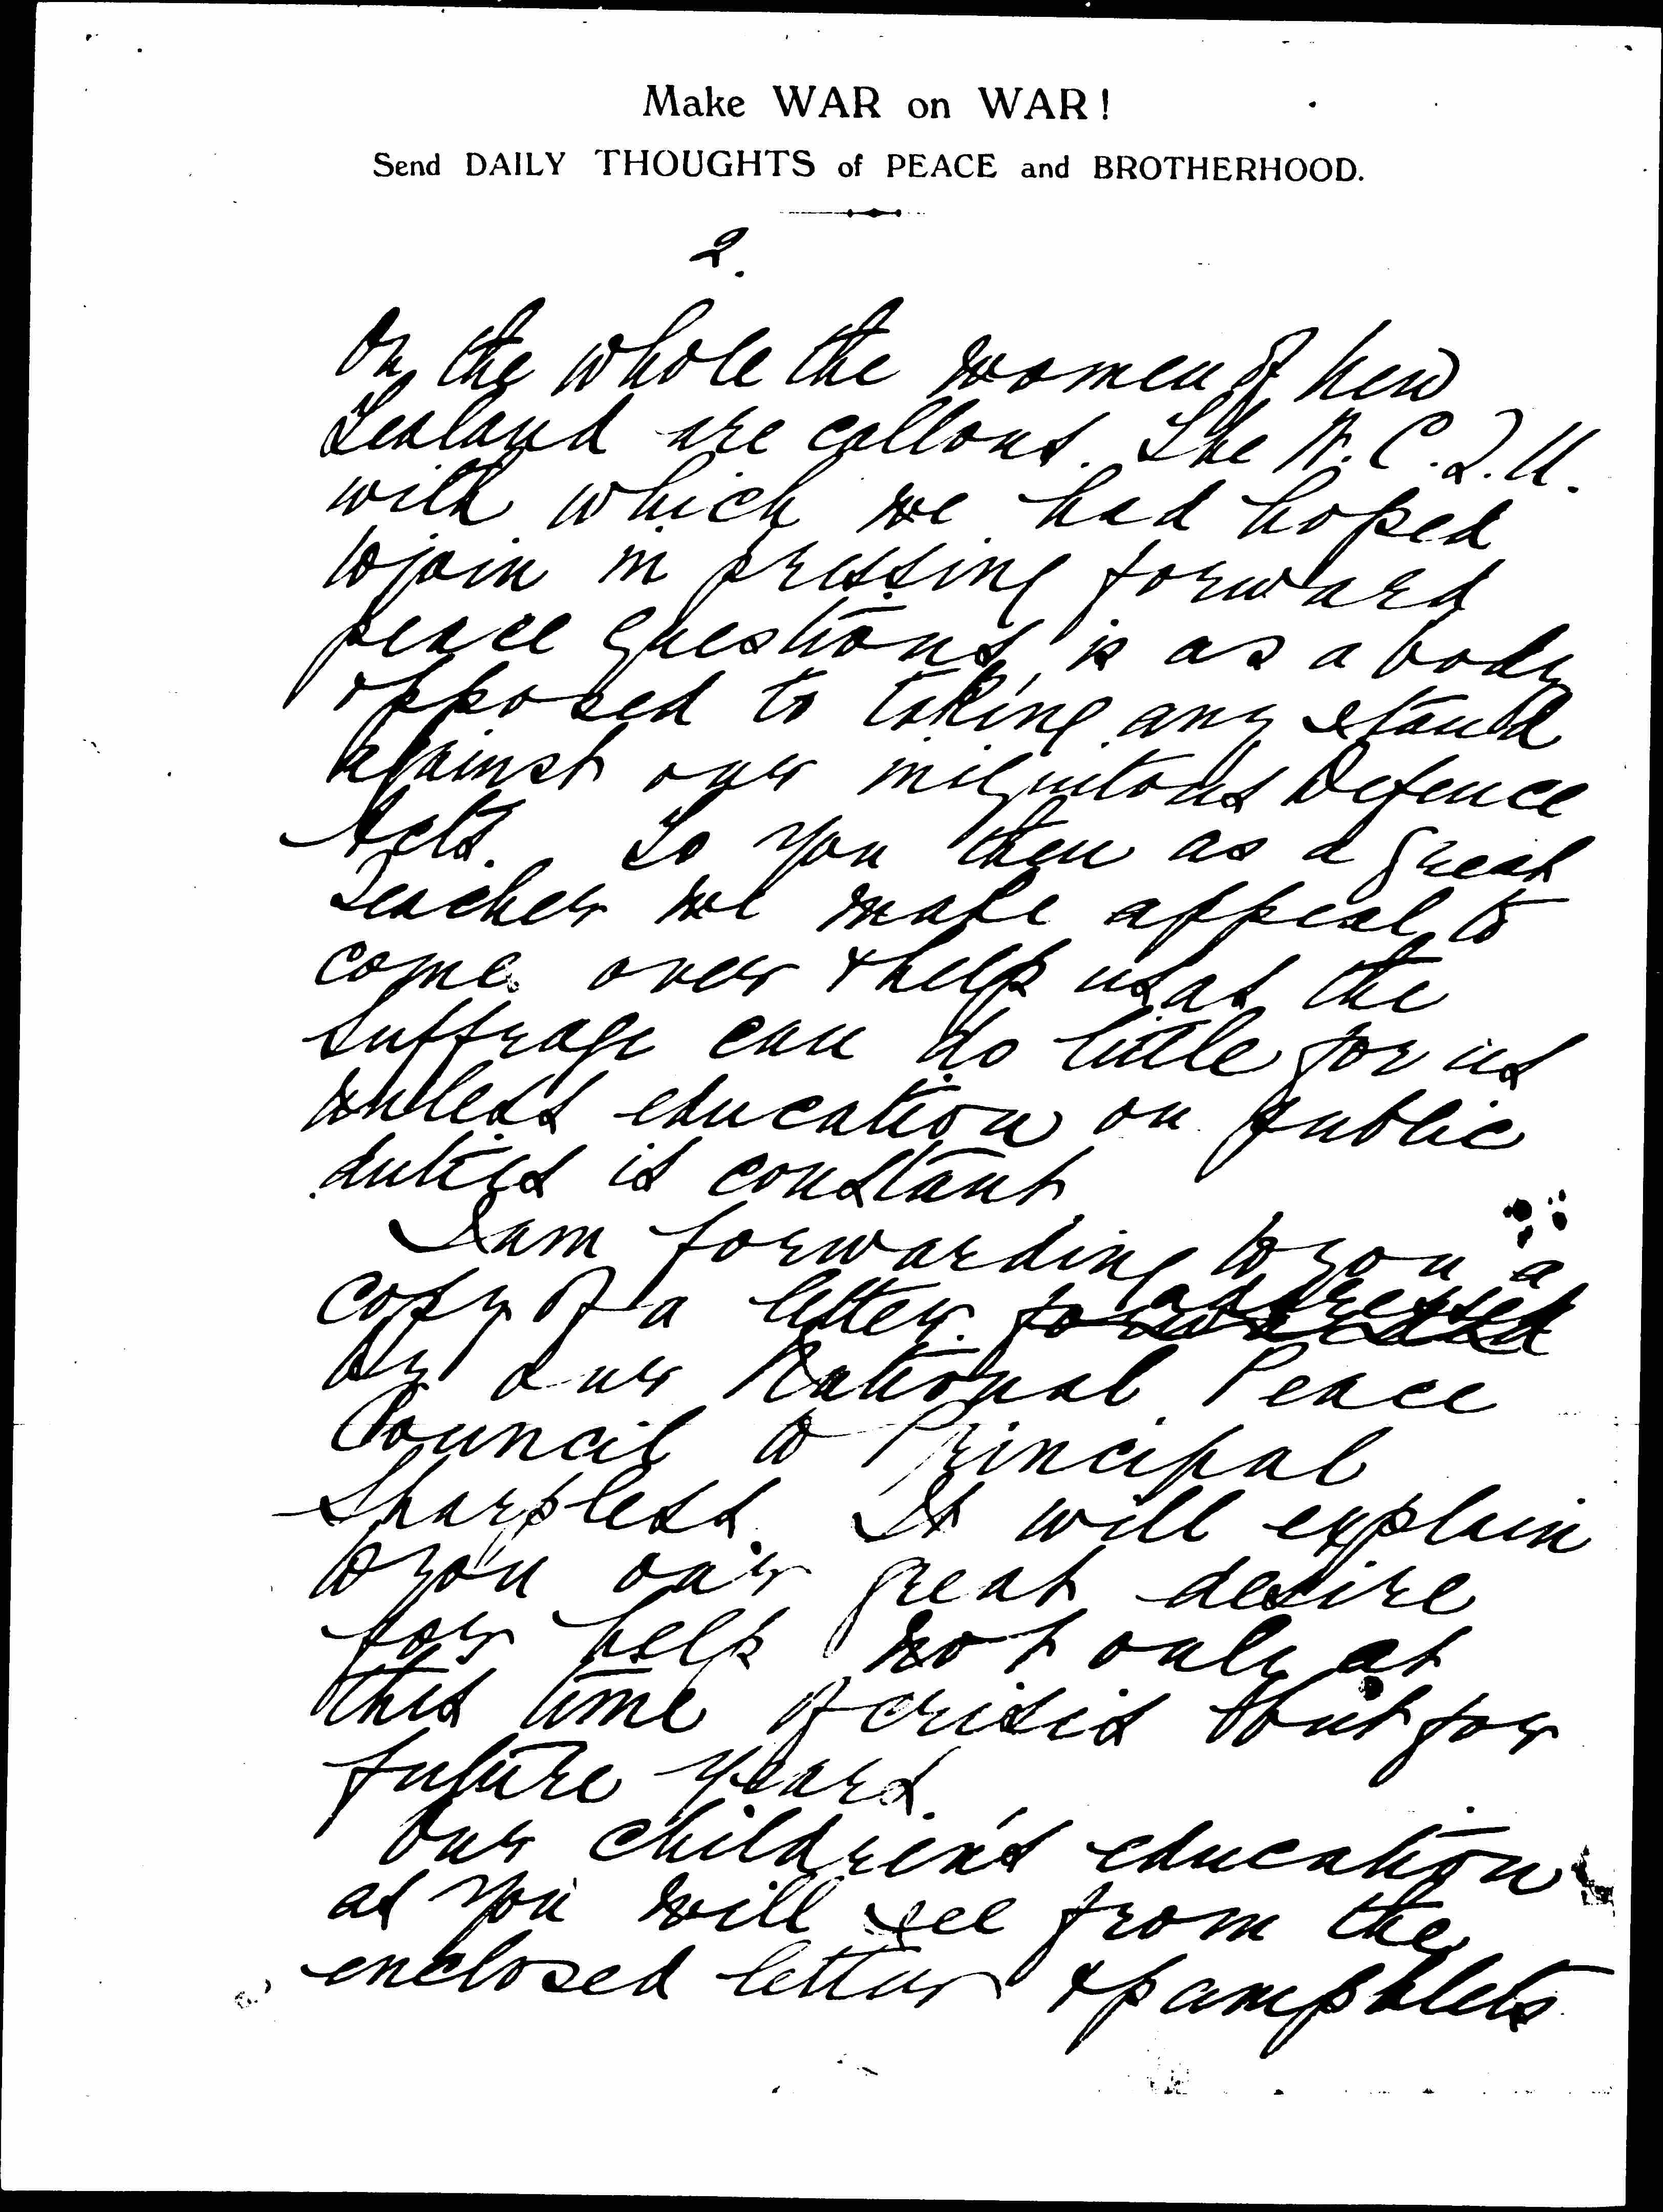 Make WAR on WAR!
Send DAILY THOUGHTS of PEACE and BROTHERHOOD.
2.
On the whole the women of New
Zealand are callous. The W.C.T.U.
with which we had hoped
to join in pressing forward
peace questions, is as a body
opposed to taking any stand
against our iniquitous Defence
Acts. To you then as a great
Teacher we make appeal to
come over & help us as the
suffrage can do little for us
unless education on public
duties is constant.
I am forwarding to you a
copy of a letter addressed
by our National Peace
Council to Principal
Sharpless. It will explain
to you our great desire
for help not only at
this time of crisis but for
future years.
Our children's education
as you will see from the
enclosed letter & pamphlets